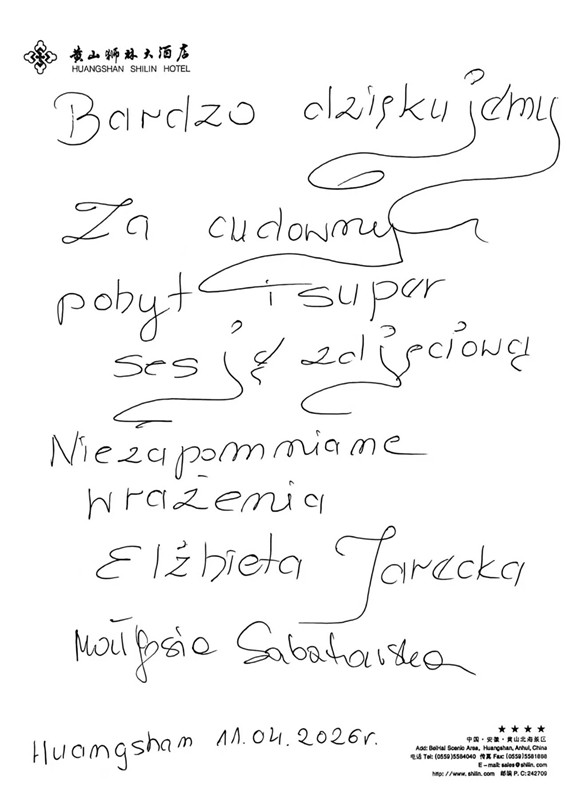 黄山狮林大酒店
HUANGSHAN SHILIN HOTEL
Bardzo dziękujemy
Za cudowny
pobyt i super
sesję zdjęciową
Niezapomniane
wrażenia
Elżbieta Jarecka
Małgosia
Huangshan 11.04.2026r.
★★★★
中国·安徽·黄山北海景区
Add: BeiHai Scenic Area, Huangshan, Anhui, China
电话 Tel: (0559)5584040 传真 Fax: (0559)5581888
E-mail: sales@shilin.com
http://www.shilin.com 邮编 P.C: 242709